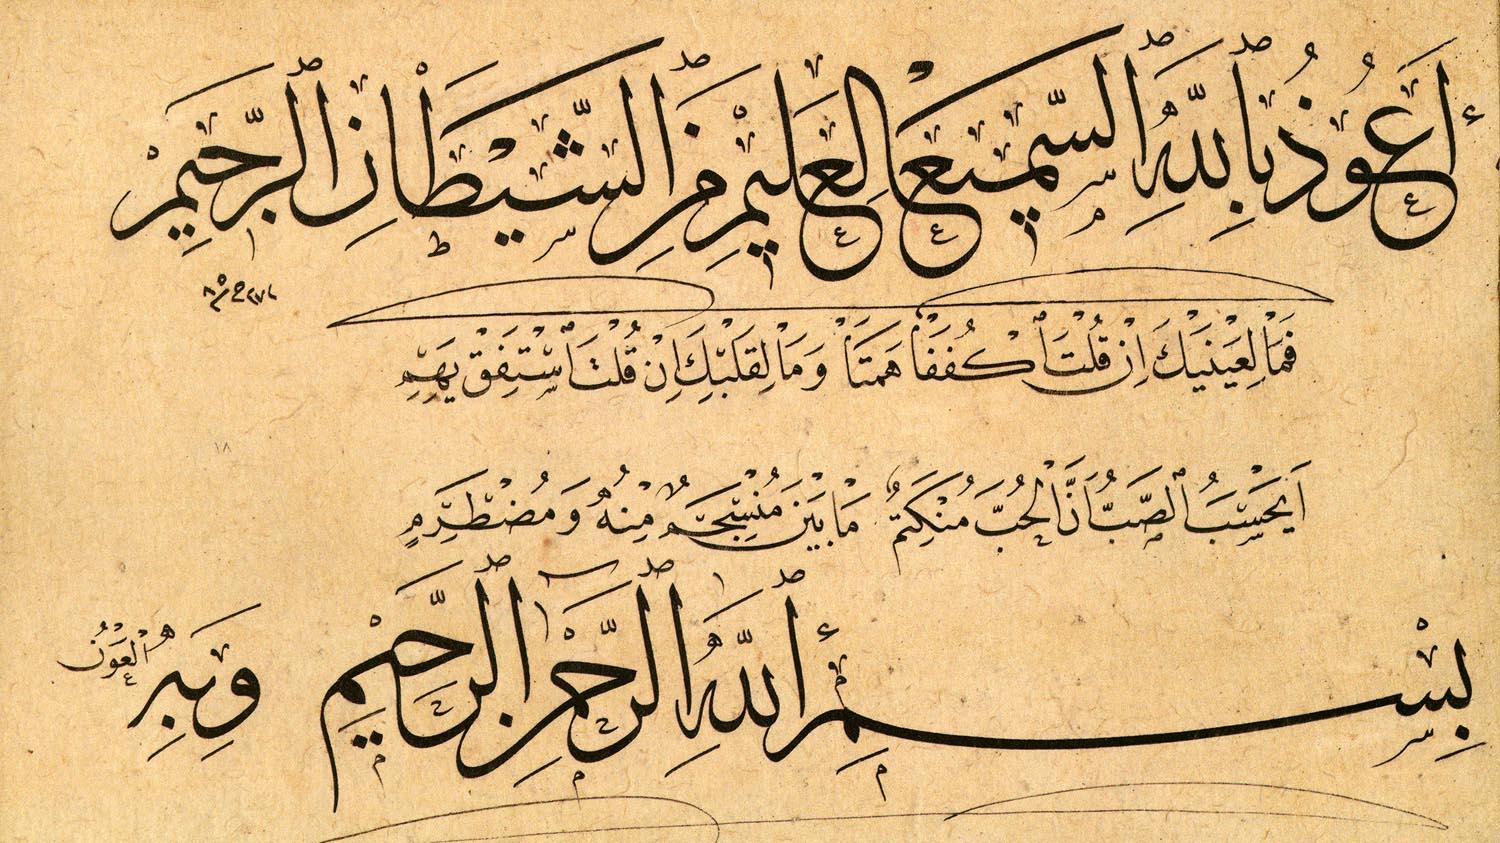 أَعُوذُ بِاللّٰهِ السَّمِيعِ الْعَلِيمِ مِنَ الشَّيْطَانِ الرَّجِيمِ
فَمَا لِعَيْنَيْكَ اِنْ قُلْتَ اكْفُفَا هَمَتَا وَمَا لِقَلْبِكَ اِنْ قُلْتَ اسْتَفِقْ يَهِمِ
اَيَحْسَبُ الصَّبُّ اَنَّ الْحُبَّ مُنْكَتِمٌ مَا بَيْنَ مُنْسَجِمٍ مِنْهُ وَمُضْطَرِمِ
بِسْمِ اللّٰهِ الرَّحْمٰنِ الرَّحِيمِ وَبِهِ الْعَوْنُ